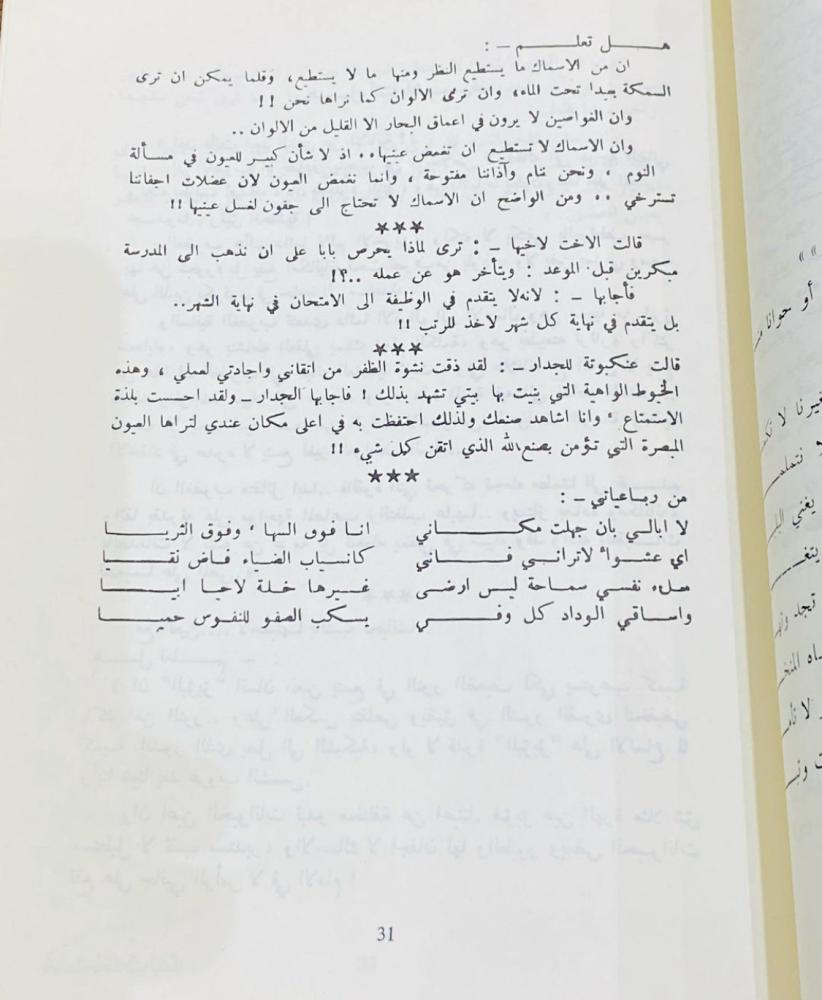 هل تعلم – :
ان من الاسماك ما يستطيع النظر ومنها ما لا يستطيع، وقلما يمكن ان ترى
السمكة بعيدا تحت الماء، وان ترى الالوان كما نراها نحن !!
وان الغواصين لا يرون في اعماق البحار الا القليل من الالوان ..
وان الاسماك لا تستطيع ان تغمض عينيها.. اذ لا شأن كبير للعيون في مسألة
النوم ، ونحن ننام وآذاننا مفتوحة ، وانما نغمض العيون لان عضلات اجفاننا
تسترخي .. ومن الواضح ان الاسماك لا تحتاج الى جفون لغسل عينيها !!
***
قالت الاخت لاخيها – : ترى لماذا يحرص بابا على ان نذهب الى المدرسة
مبكرين قبل الموعد : ويتأخر هو عن عمله ..؟!
فأجابها – : لانه لا يتقدم في الوظيفة الى الامتحان في نهاية الشهر..
بل يتقدم في نهاية كل شهر لاخذ للرتب !!
***
قالت عنكبوتة للجدار – : لقد ذقت نشوة الظفر من اتقاني واجادتي لعملي ، وهذه
الخيوط الواهية التي بنيت بها بيتي تشهد بذلك ! فاجابها الجدار – ولقد احسست بلذة
الاستمتاع ، وانا اشاهد صنعك ولذلك احتفظت به في اعلى مكان عندي لتراها العيون
المبصرة التي تؤمن بصنع الله الذي اتقن كل شيء !!
***
من رباعياتي – :
لا ابالي بأن جهلت مكاني انا فوق السها ، وفوق الثريا
اي عشواء لا تراني فاني كانسياب الضياء فاض نقيا
ملء نفسي سماحة ليس ارضى غيرها خلة لاحيا ابيا
واساقي الوداد كل وفي يسكب الصفو للنفوس حميا
31
« «
أو حوانا
غيرنا لا
يغني
تجد
لا